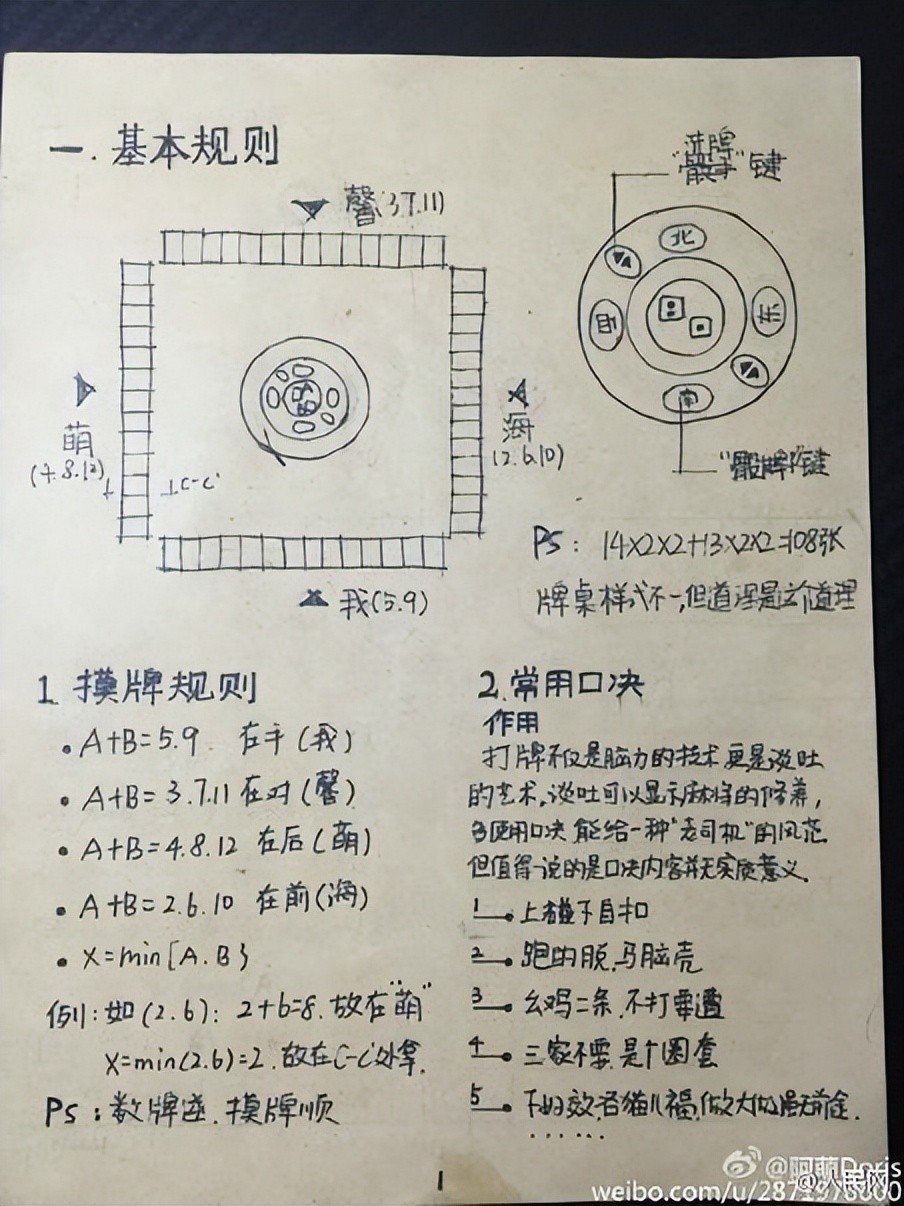 一.基本规则
馨(3.7.11)
萌
(4.8.12)
C-C'
海
(2.6.10)
我(5.9)
洗牌
键
北
东
南
西
键
PS: 14×2×2+13×2×2=108张
牌桌样式不一,但道理是这个道理
1.摸牌规则
A+B=5.9. 在手(我)
A+B=3.7.11在对(馨)
A+B=4.8.12 在后(萌)
A+B=2.6.10 在前(海)
X=min{A.B}
例:如(2.6): 2+6=8.放在"萌"
X=min(2.6)=2.放在C-C'处拿.
PS:数牌逆.摸牌顺
2.常用口决
作用
打牌不仅是脑力的技术更是谈吐
的艺术,谈吐可以显示麻将的修养,
多使用口决 能给一种"老司机"的风范
但值得一说的是口决内容并无实质意义.
1 上碰下自扣
2 跑的脱.马脑壳
3 幺鸡二条.不打要遭
4 三家不要.是个圈套
5
......
1
@阿萌Doris
@人民网
weibo.com/u/2871978800